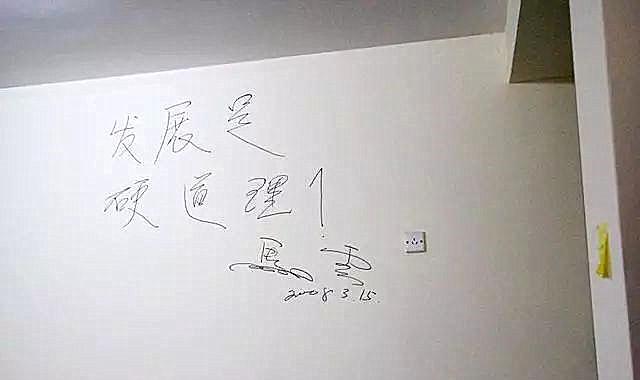 发展是
硬道理!
馬雲
2008.3.15.